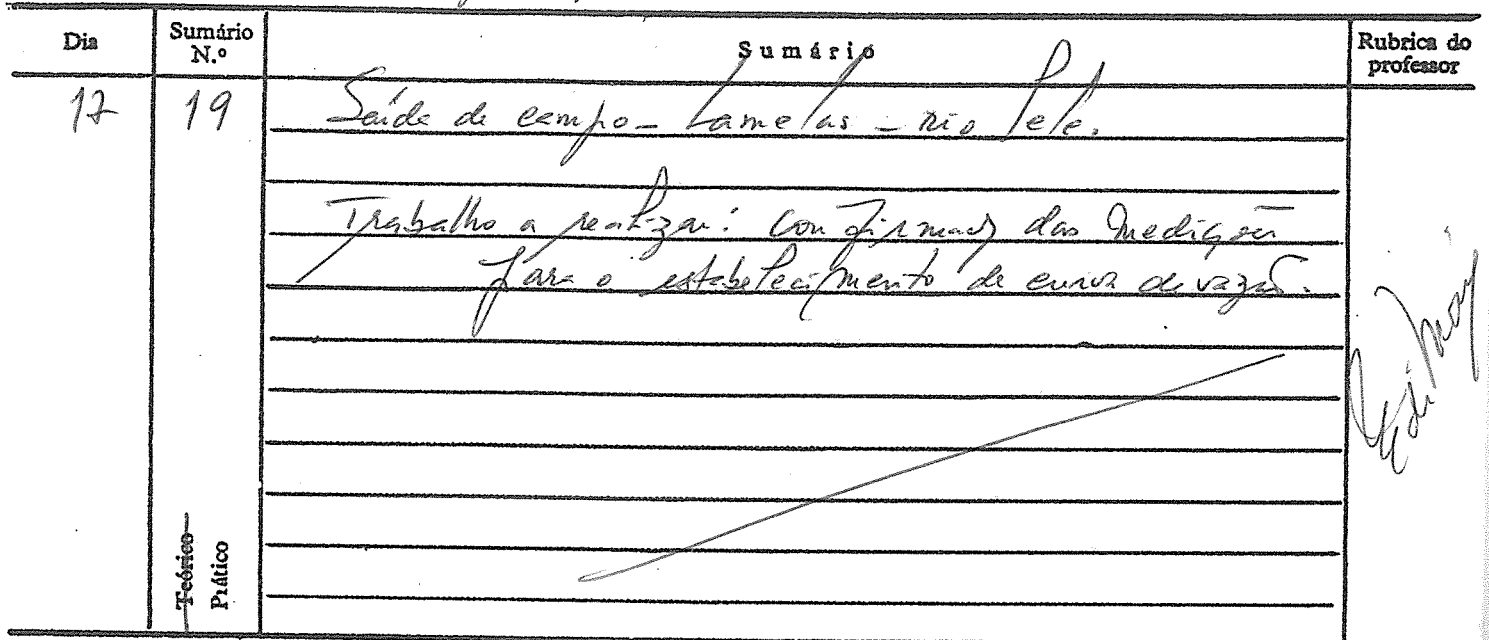 Dia
Sumário N.º
Sumário
Rubrica do professor
17 19 Saída de campo - Lamelas - rio Pele.
Trabalho a realizar: das medições
para o estabelecimento de curva de vazão.
Teórico
Prático